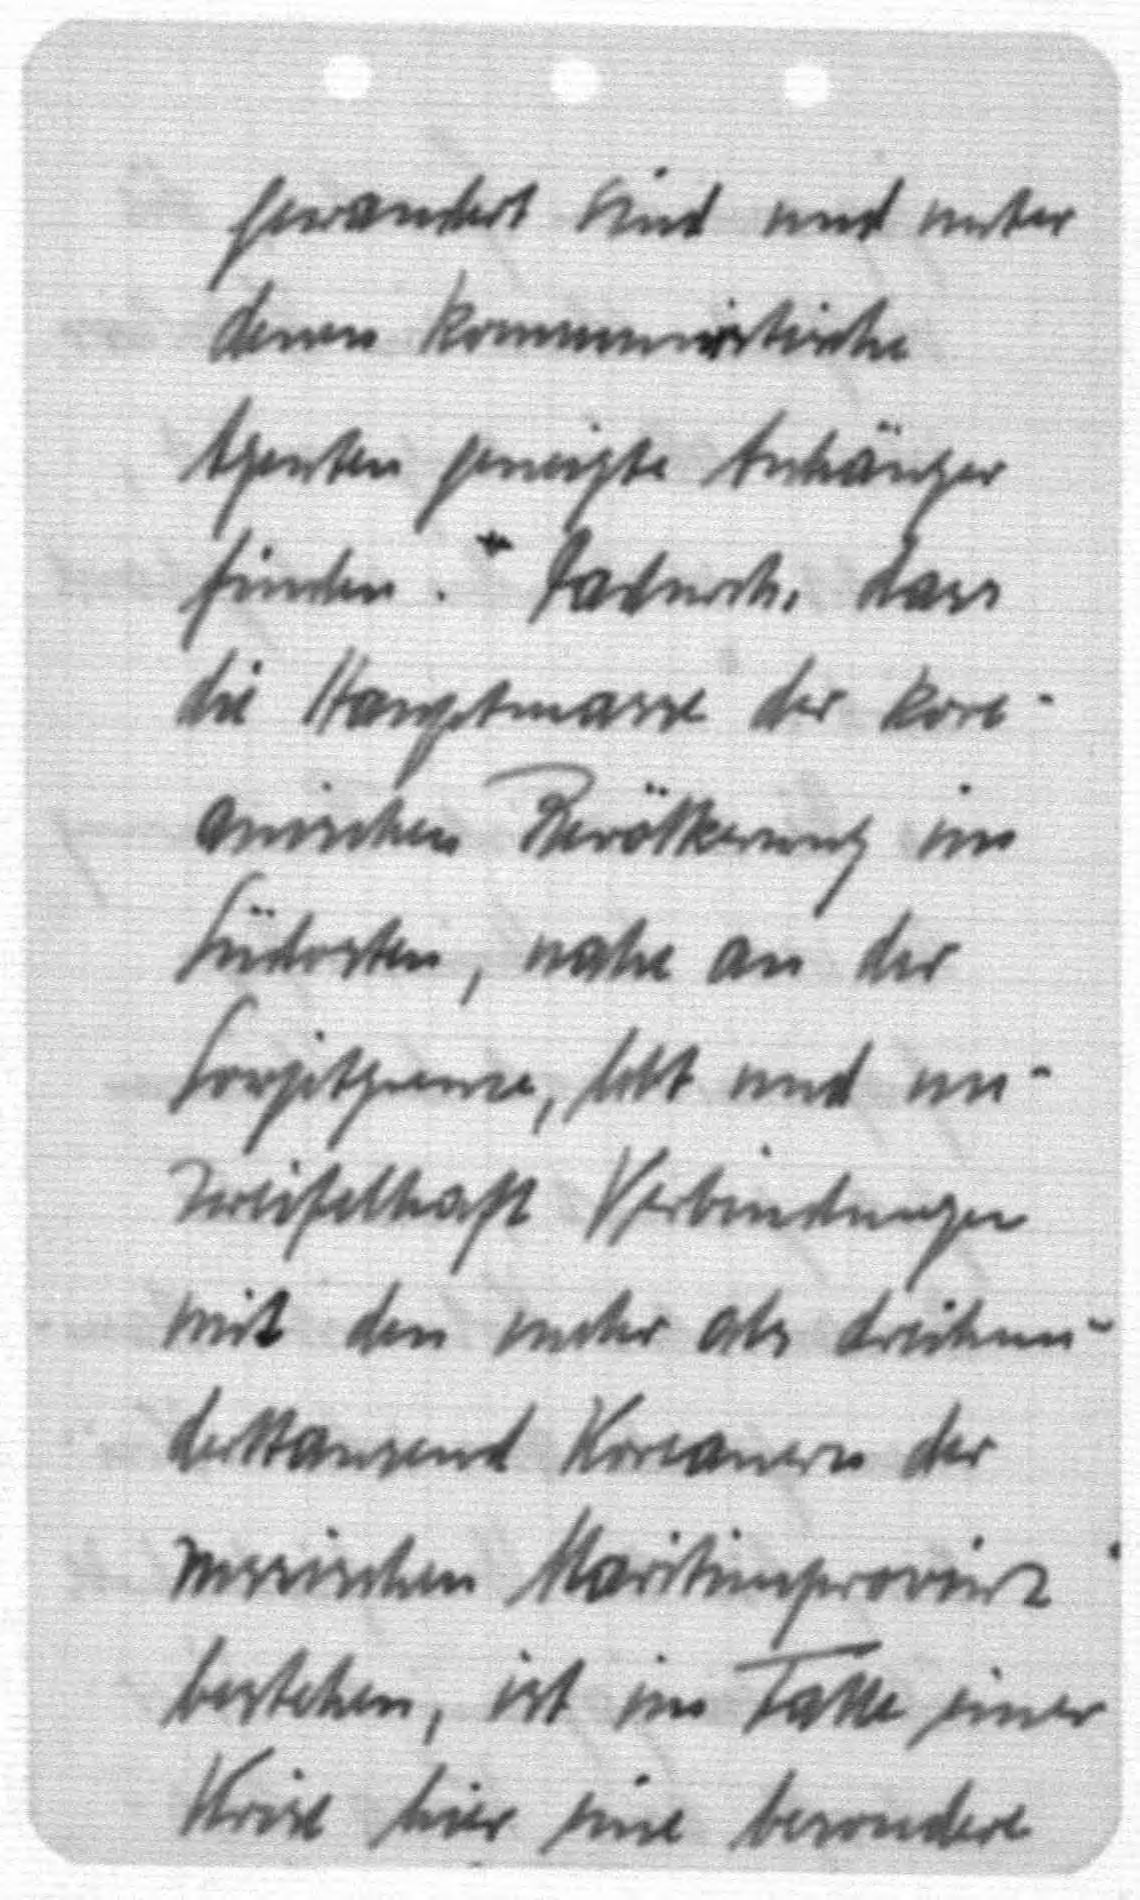 gewandert sind und unter
denen kommunistische
Agenten geneigte Anhänger
finden. Dadurch, dass
die Hauptmasse der kore-
anischen Bevölkerung im
Südosten, nahe an der
Sowjetgrenze, lebt und un-
zweifelhaft Verbindungen
mit den mehr als dreihun-
derttausend Koreanern der
russischen Maritimprovinz
bestehen, ist im Falle einer
Krise hier eine besondere